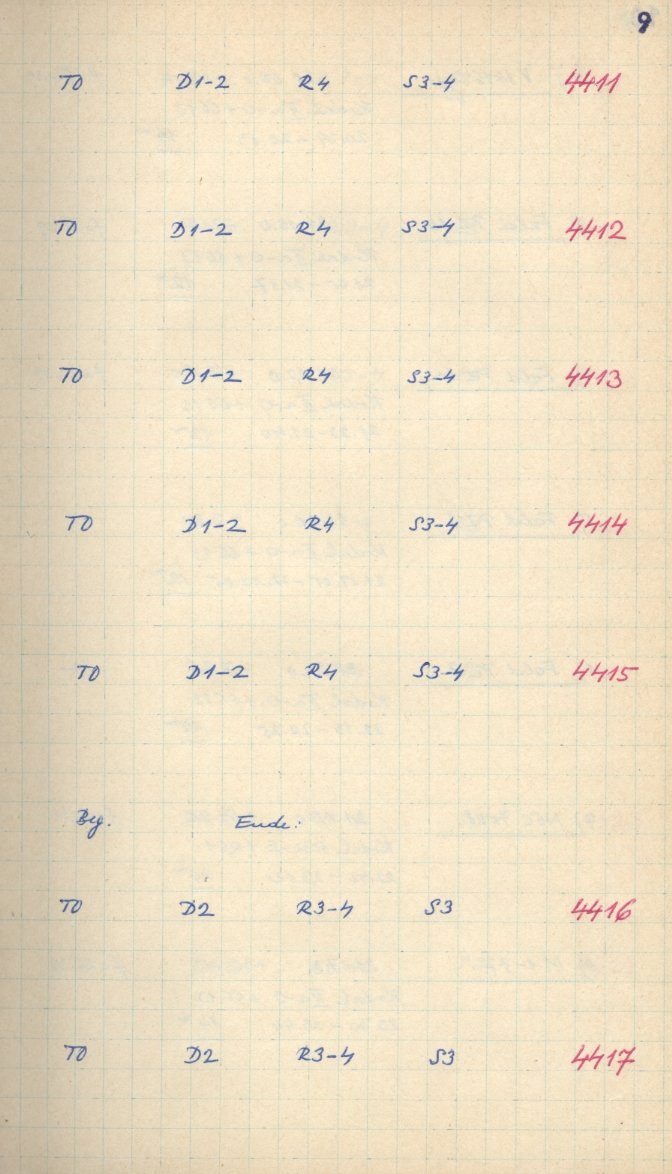 9
TO D1-2 R4 S3-4 4411
TO D1-2 R4 S3-4 4412
TO D1-2 R4 S3-4 4413
TO D1-2 R4 S3-4 4414
TO D1-2 R4 S3-4 4415
Beg. Ende:
TO D2 R3-4 S3 4416
TO D2 R3-4 S3 4417